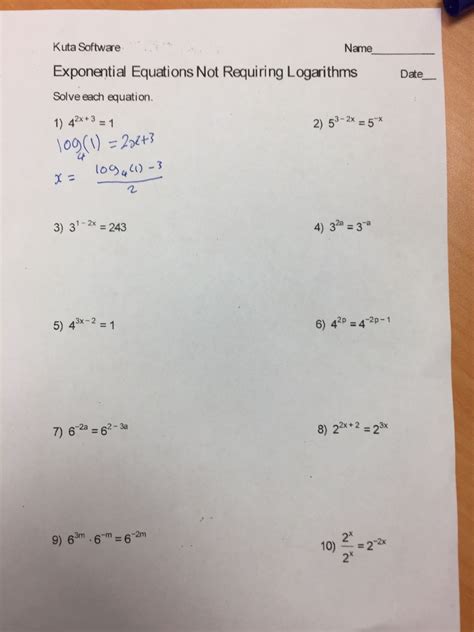 Kuta Software
Name
Exponential Equations Not Requiring Logarithms
Date
Solve each equation.
1) 4^(2x + 3) = 1
2) 5^(3 − 2x) = 5^(−x)
log₄(1) = 2x+3
x = (log₄(1) − 3)/2
3) 3^(1 − 2x) = 243
4) 3^(2a) = 3^(−a)
5) 4^(3x − 2) = 1
6) 4^(2p) = 4^(−2p − 1)
7) 6^(−2a) = 6^(2 − 3a)
8) 2^(2x + 2) = 2^(3x)
9) 6^(3m) · 6^(−m) = 6^(−2m)
10) 2^x/2^x = 2^(−2x)